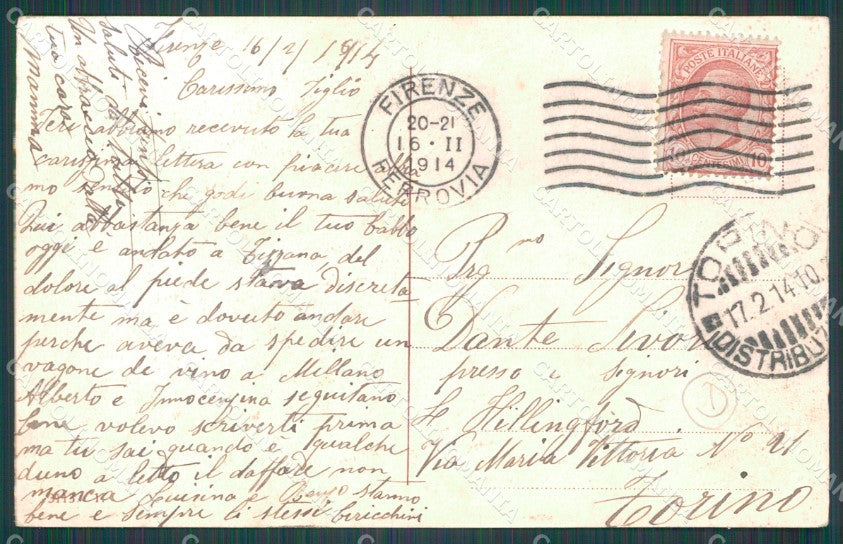 Firenze 16/2/1914
Carissimo Figlio
Ieri abbiamo ricevuto la tua
carissima lettera con piacere abbia
mo sentito che godi buona salute
Qui abbastanza bene il tuo babbo
oggi è andato a Tizzana, del
dolore al piede stava discreta
mente ma è dovuto andare
perche aveva da spedire un
vagone de vino a Millano
Alberto e Innocenzina seguitano
bene volevo scriverti prima
ma tu sai quando è qualche
duno a letto il daffare non
manca e Beppo stanno
bene e sempre li stessi biricchini
Ricevi tanti
saluti da tutti
Un abbraccio dalla
tua cara
mamma
FIRENZE
20-21
16·II
1914
FERROVIA
POSTE ITALIANE
10 CENTESIMI 10
TO
17.2.14.10
DISTRIBU
Prg mo Signor
Dante
presso i Signori
H Hillingford
Via Maria Vittoria No 21
Torino